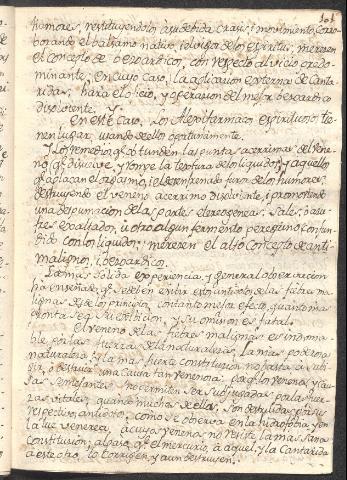 101
humores, restituyendolos à su debida crasis, i movimiento, corro-
borando el balsamo nativo, i el vigor de los espiritus, merecen
el concepto de bezoardicos, con respecto al vicio predo-
minante, en cuyo caso, la aplicacion externa de Canta-
ridas, hara el oficio, y operacion del mejor bezoardico
disolvente. Y
En este caso, los Alexifarmacos espirituosos tie-
nen lugar, usando de ellos oportunamente.
Y los remedios qe. obtunden las puntas acerrimas del vene-
no qe. disuelve, y rompe la textura de los liquidos; y aquellos
qe. aplacan el orgasmo, i el desenfrenado furor de los humores,
destruyendo el veneno acerrimo disolvente, i promoviendo
una despumacion de las partes etereogeneas, Sales, ò asu-
fres exaltados, ù otro algun fermento peregrino confun-
dido con los liquidos; merecen el alto concepto de anti-
malignos, i bezoardicos.
La mas solida experiencia, y general observacion
ha enseñado, qe. se deben evitar estos antidotos de las fiebres ma-
lignas desde los principios, con tanto mejor efecto, quanto mas
pronta sea su exibicion, y su omision es fatal.
El veneno de las fiebres malignas es indoma-
ble por las fuerzas de la naturaleza, la mas poderosa
naturaleza, i la mas fuerte constitucion no basta à sub-
, ò destruir una causa tan venenosa, pa. qe. los venenos, y cau-
sas semejantes no permiten ser subjugadas por las fuer-
zas vitales, quando muchas de ellas son destruidas por su
respectivo antidoto; como se observa en la hidrofobia, y en
la lue venerea, à cuyos venenos no resiste la mas sana
constitucion; al paso, qe. el mercurio, à aquel, y la Cantarida
a este otro, lo corrigen, y aun destruyen.